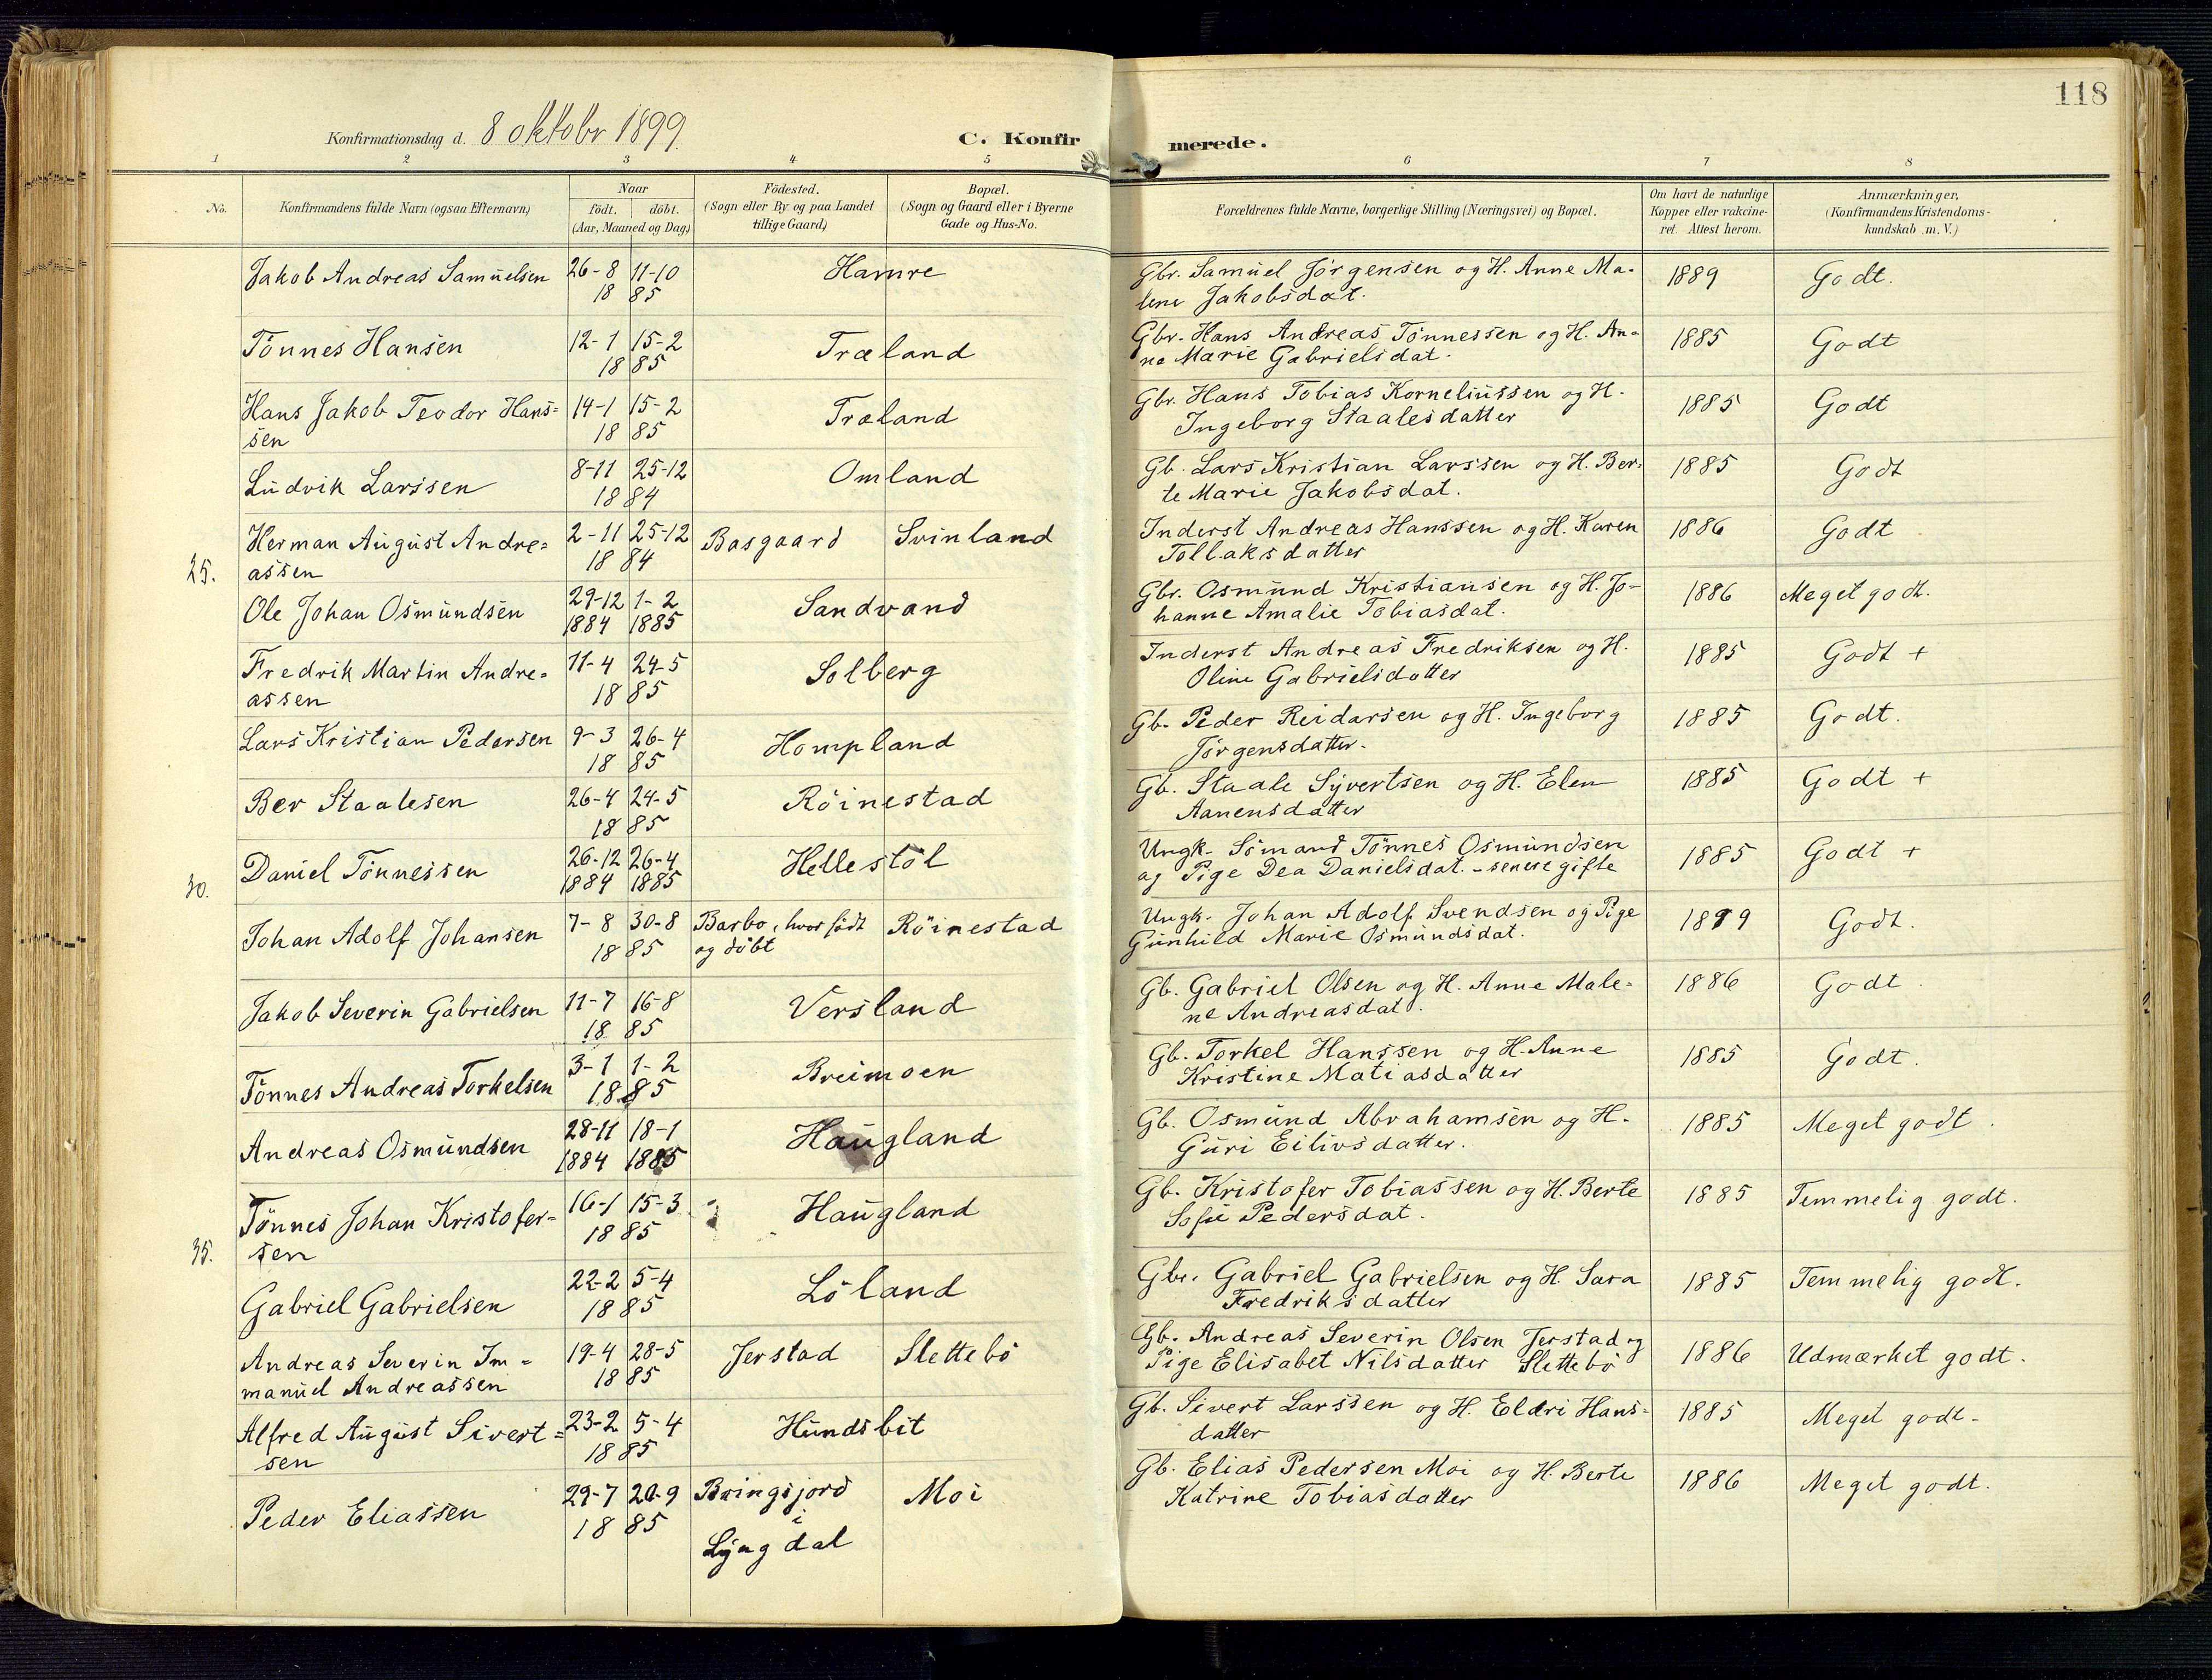 118
Konfirmationsdag d. 8 oktobr 1899.
C. Konfirmerede.
1 2 3 4 5 6 7 8
No.
Konfirmandens fulde Navn (ogsaa Efternavn)
Naar
födt. döbt.
(Aar, Maaned og Dag)
Födested.
(Sogn eller By og paa Landet
tillige Gaard)
Bopæl.
(Sogn og Gaard eller i Byerne
Gade og Hus-No.
Forældrenes fulde Navne, borgerlige Stilling (Næringsvei) og Bopæl.
Om havt de naturlige
Kopper eller vakcine-
ret. Attest herom.
Anmærkninger,
(Konfirmandens Kristendoms-
kundskab m. V.)
Jakob Andreas Samuelsen 26-8 11-10 Hamre Gbr. Samuel Jörgensen og H. Anne Ma- 1889 Godt.
18 85 lene Jakobsdat.
Tönnes Hansen 12-1 15-2 Træland Gbr. Hans Andreas Tönnessen og H. An- 1885 Godt
18 85 ne Marie Gabrielsdat.
Hans Jakob Teodor Hans= 14-1 15-2 Træland Gbr. Hans Tobias Korneliussen og H. 1885 Godt
sen 18 85 Ingeborg Staalesdatter
Ludvik Larssen 8-11 25-12 Omland Gb. Lars Kristian Larssen og H. Ber- 1885 Godt
18 84 te Marie Jakobsdat.
Herman August Andre= 2-11 25-12 Basgaard Svinland Inderst Andreas Hanssen og H. Karen 1886 Godt
25. assen 18 84 Tollaksdatter
Ole Johan Osmundsen 29-12 1-2 Sandvand Gbr. Osmund Kristiansen og H. Jo- 1886 Meget godt.
1884 1885 hanne Amalie Tobiasdat.
Fredrik Martin Andre= 11-4 24-5 Solberg Inderst Andreas Fredriksen og H. 1885 Godt +
assen 18 85 Oline Gabrielsdatter
Lars Kristian Pedersen 9-3 26-4 Hompland Gb. Peder Reidarsen og H. Ingeborg 1885 Godt.
18 85 Jörgensdatter.
Ber Staalesen 26-4 24-5 Röinestad Gb. Staale Syvertsen og H. Elen 1885 Godt +
18 85 Aanensdatter
Daniel Tönnessen 26-12 26-4 Hellestöl Ungk. Sömand Tönnes Osmundsen 1885 Godt +
30. 1884 1885 og Pige Dea Danielsdat. - senere gifte
Johan Adolf Johansen 7-8 30-8 Barbo, hvor födt Röinestad Ungk. Johan Adolf Svendsen og Pige 1899 Godt.
18 85 og döbt Gunhild Marie Osmundsdat.
Jakob Severin Gabrielsen 11-7 16-8 Versland Gb. Gabriel Olsen og H. Anne Male= 1886 Godt.
18 85 ne Andreasdat.
Tönnes Andreas Torkelsen 3-1 1-2 Breimoen Gb. Torkel Hanssen og H. Anne 1885 Godt.
18 85 Kristine Matiasdatter
Andreas Osmundsen 28-11 18-1 Haugland Gb. Osmund Abrahamsen og H. 1885 Meget godt.
1884 1885 Guri Eilivsdatter.
Tönnes Johan Kristofer= 16-1 15-3 Haugland Gb. Kristofer Tobiassen og H. Berte 1885 Temmelig godt.
35. sen 18 85 Sofie Pedersdat.
Gabriel Gabrielsen 22-2 5-4 Löland Gbr. Gabriel Gabrielsen og H. Sara 1885 Temmelig godt.
18 85 Fredriksdatter
Andreas Severin Im= 19-4 28-5 Jerstad Slettebö Gb. Andreas Severin Olsen Jerstad og 1886 Udmærket godt.
manuel Andreassen 18 85 Pige Elisabet Nilsdatter Slettebö
Alfred August Sivert= 23-2 5-4 Hundsbit Gb. Sivert Larssen og H. Eldri Hans- 1885 Meget godt.
sen 18 85 datter
Peder Eliassen 29-7 20-9 Bringsjord Moi Gb. Elias Pedersen Moi og H. Berte 1886 Meget godt.
18 85 i Katrine Tobiasdatter
Lyngdal